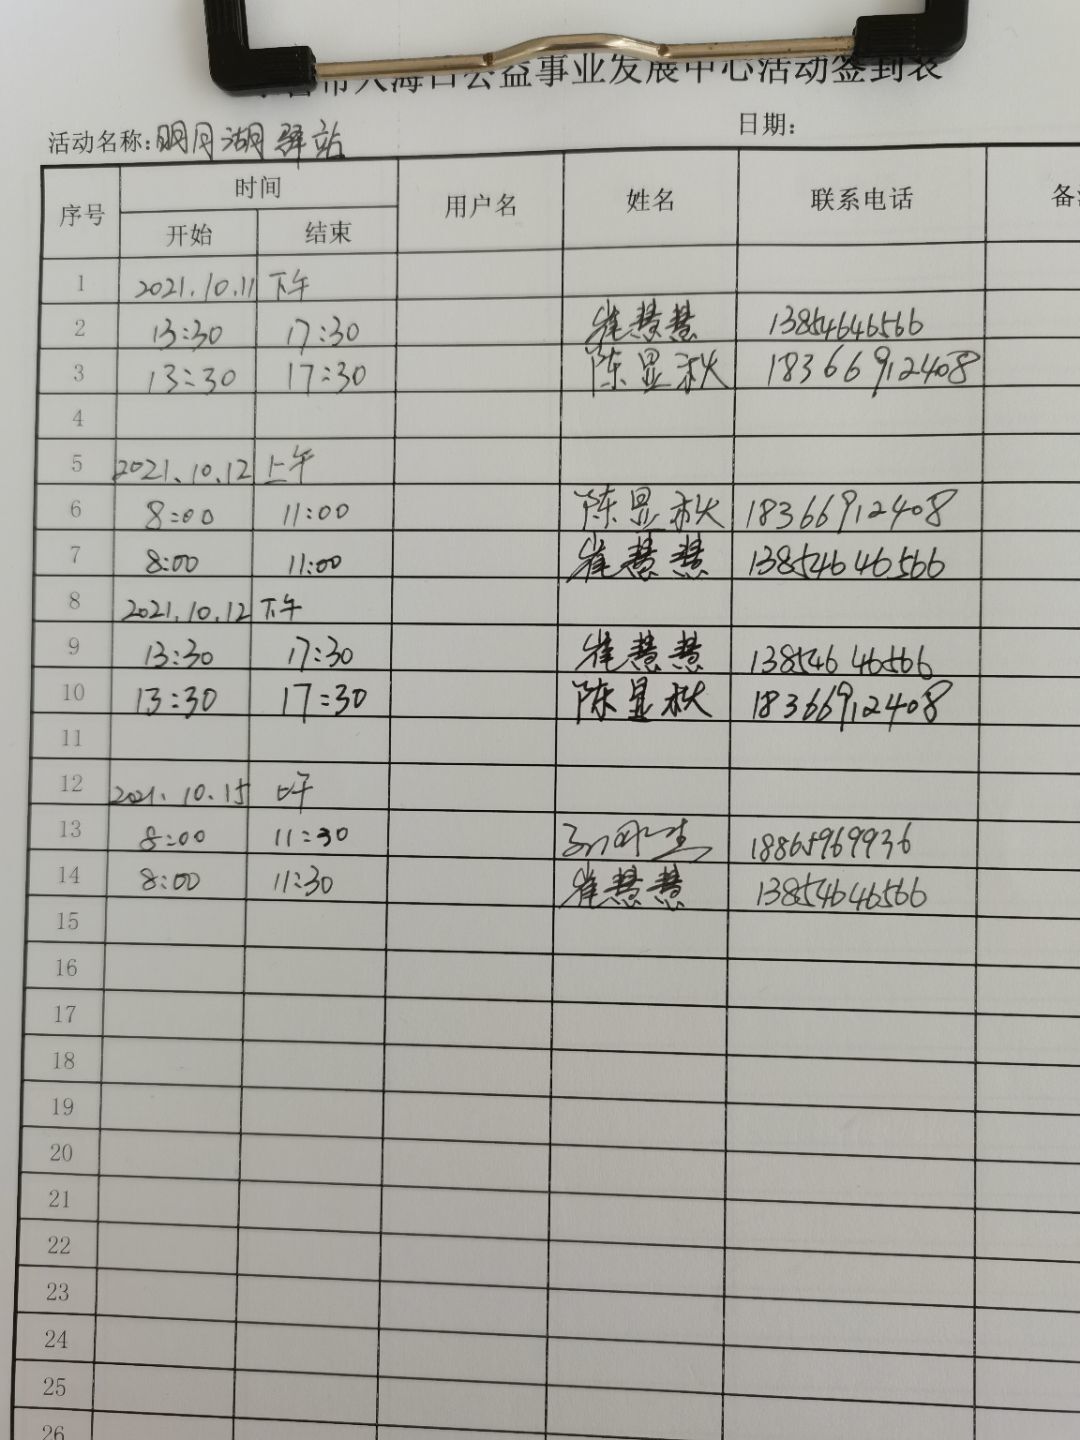 市入海口公益事业发展中心活动签到表
活动名称：明月湖驿站 日期：
序号 时间 用户名 姓名 联系电话
开始 结束
1 2021.10.11 下午
2 13:30 17:30 崔慧慧 13854646566
3 13:30 17:30 陈显秋 18366912408
4
5 2021.10.12 上午
6 8:00 11:00 陈显秋 18366912408
7 8:00 11:00 崔慧慧 13854646566
8 2021.10.12 下午
9 13:30 17:30 崔慧慧 13854646566
10 13:30 17:30 陈显秋 18366912408
11
12 2021.10.15 上午
13 8:00 11:30 18865969936
14 8:00 11:30 崔慧慧 13854646566
15
16
17
18
19
20
21
22
23
24
25
26